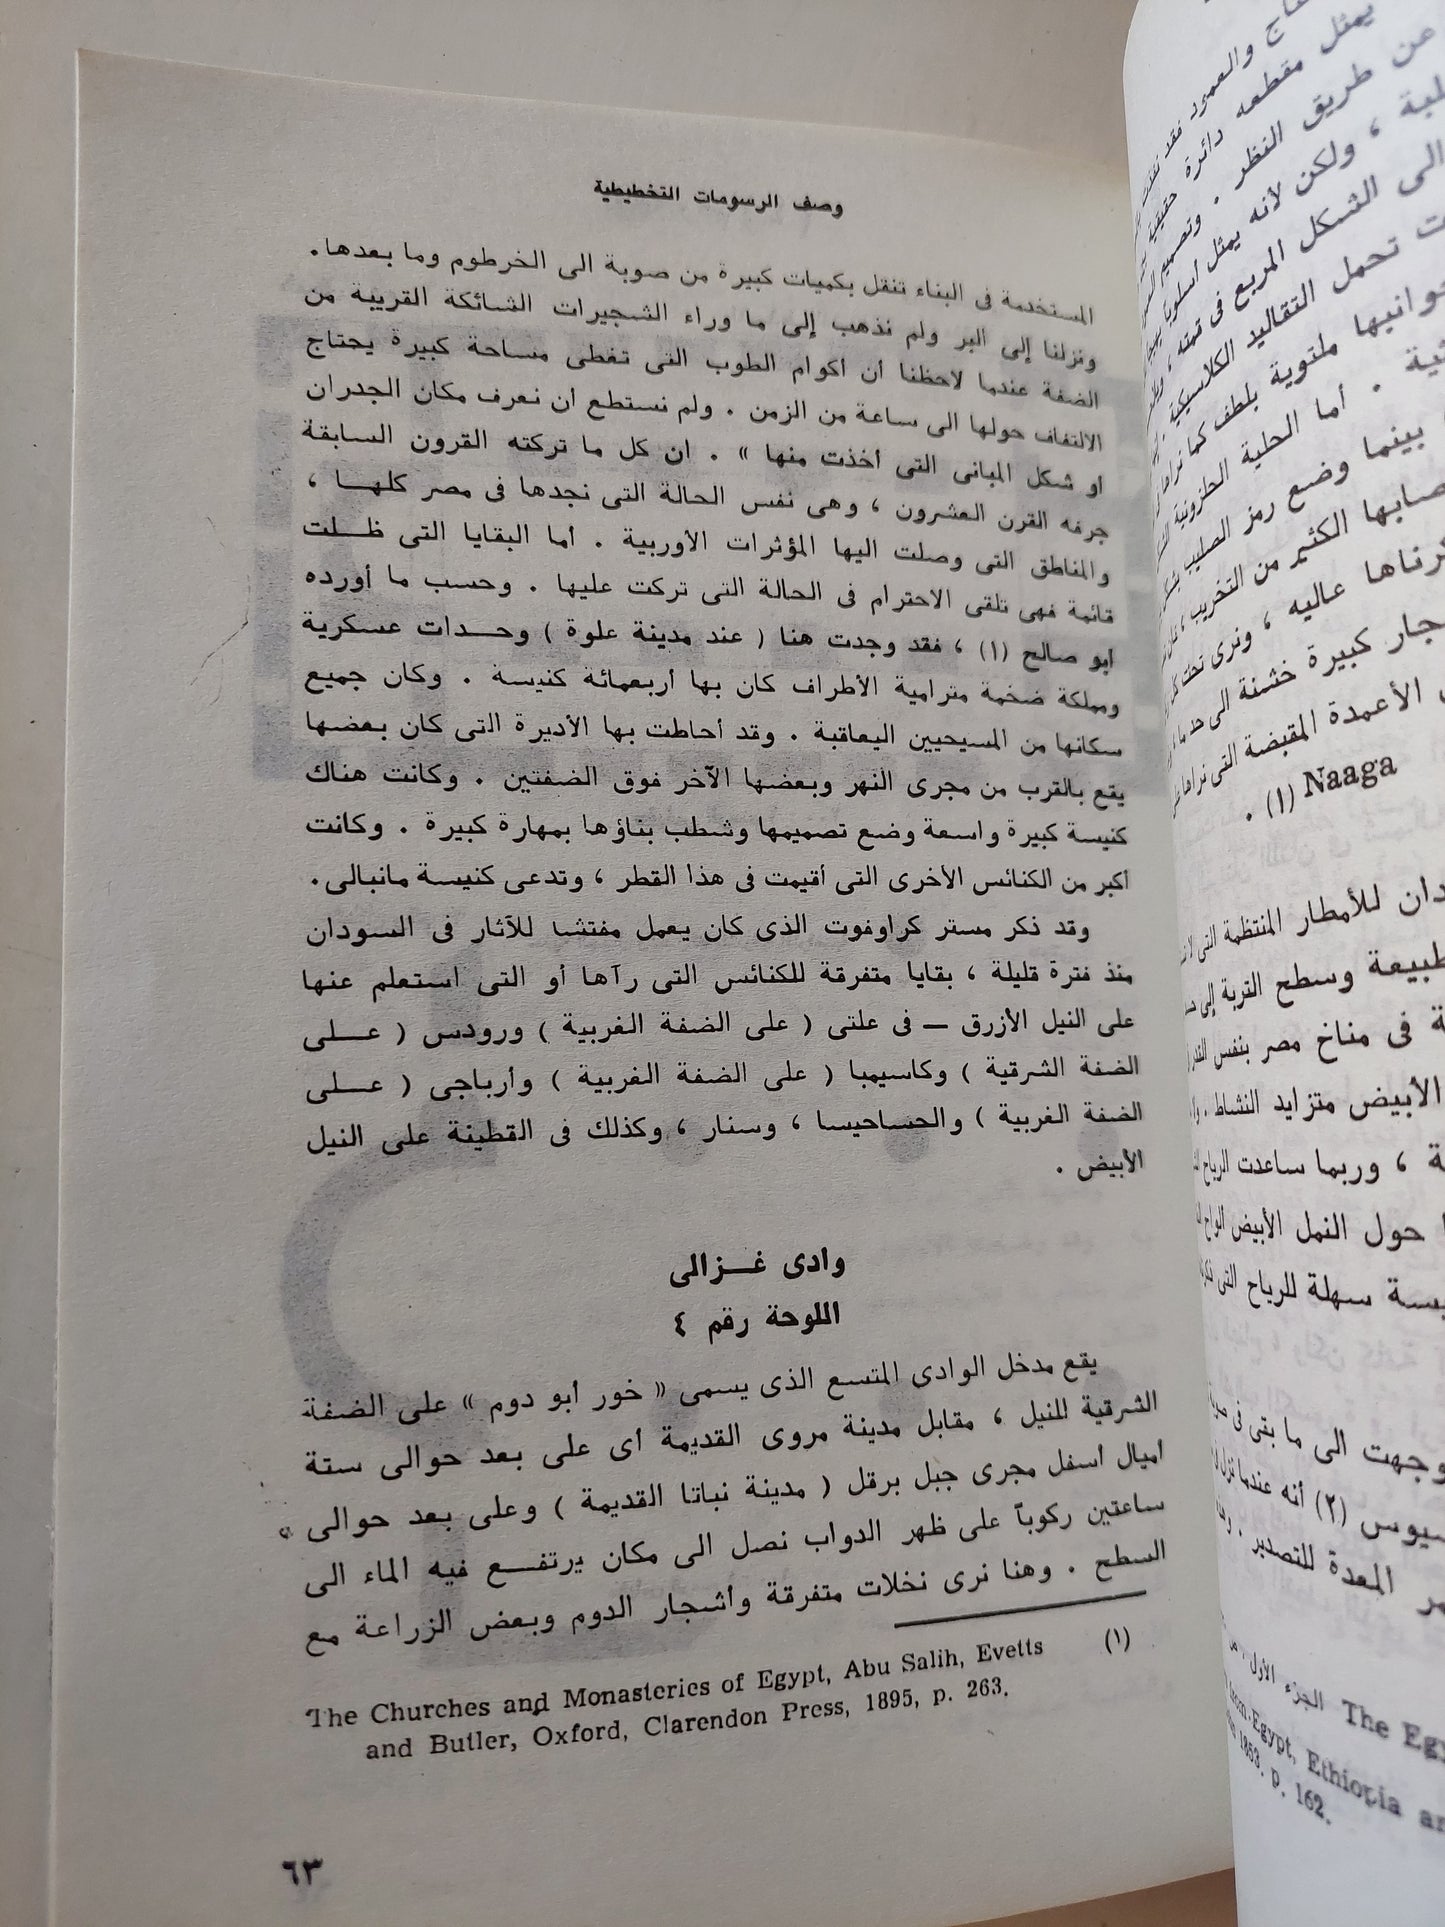 وصف الرسومات التخطيطية
المستخدمة فى البناء تنقل بكميات كبيرة من صوبة الى الخرطوم وما بعدها.
ونزلنا إلى البر ولم نذهب إلى ما وراء الشجيرات الشائكة القريبة من
الضفة عندما لاحظنا أن أكوام الطوب التى تغطى مساحة كبيرة يحتاج
الالتفاف حولها الى ساعة من الزمن . ولم نستطع أن نعرف مكان الجدران
او شكل المبانى التى أخذت منها » . ان كل ما تركته القرون السابقة
جرفه القرن العشرون ، وهى نفس الحالة التى نجدها فى مصر كلهـا ،
والمناطق التى وصلت اليها المؤثرات الأوربية . أما البقايا التى ظـلت
قائمة فهى تلقى الاحترام فى الحالة التى تركت عليها . وحسب ما أورده
ابو صالح (١) ، فقد وجدت هنا ( عند مدينة علوة ) وحـدات عسكرية
ومملكة ضخمة مترامية الأطراف كان بها أربعمائة كنيسة . وكان جميع
سكانها من المسيحيين اليعاقبة . وقد أحاطت بها الأديرة التى كان بعضها
يقع بالقرب من مجرى النهر وبعضها الآخر فوق الضفتين . وكانت هناك
كنيسة كبيرة واسعة وضع تصميمها وشطب بناؤها بمهارة كبيرة . وكانت
أكبر من الكنائس الأخرى التى أقيمت فى هذا القطر ، وتدعى كنيسة مانبالى.
وقد ذكر مستر كراوفوت الذى كان يعمل مفتشا للآثار فى السودان
منذ فترة قليلة ، بقايا متفرقة للكنائس التى رآها أو التى استعلم عنها
على النيل الأزرق — فى علتى ( على الضفة الغربية ) ورودس ( عـلى
الضفة الشرقية ) وكاسيمبا ( على الضفة الغربية ) وأرباجى ( عـلى
الضفة الغربية ) والحساحيسا ، وسنار ، وكذلك فى القطينة على النيل
الأبيض .
وادى غـزالى
اللوحة رقم ٤
يقع مدخل الوادى المتسع الذى يسمى « خور أبو دوم » على الضفة
الشرقية للنيل ، مقابل مدينة مروى القديمة أى على بعد حوالى ستة
أميال أسفل مجرى جبل برقل ( مدينة نباتا القديمة ) وعلى بعد حوالى
ساعتين ركوباً على ظهر الدواب نصل الى مكان يرتفـع فيه الماء الى
السطح . وهنا نرى نخلات متفرقة وأشجار الدوم وبعض الزراعة مع
(١)
The Churches and Monasteries of Egypt, Abu Salih, Evetts
and Butler, Oxford, Clarendon Press, 1895, p. 263.
٦٣
يمثل مقطعه دائرة حقيقية
عن طريق النظر . وتصميم
، ولكن لأنه يمثل اسلوبا
الى الشكل المربع فى قمته ،
تحمل التقاليد الكلاسيكية
ملتوية بلطف كما نراها
. أما الحلية الحلزونية
بينما وضع رمز الصليب
الكثير من التخريب ،
عاليه ، ونرى تحت
كبيرة خشنة الى حد ما ،
الأعمدة المقبضة التى نراها
Naaga (١) .
للأمطار المنتظمة التى
وسطح التربة إلى
فى مناخ مصر بنفس
الأبيض متزايد النشاط .
، وربما ساعدت الرياح
حول النمل الأبيض
سهلة للرياح التى
الى ما بقى فى
(٢) أنه عندما نزل
المعدة للتصدير .
الجزء الأول
The
Egypt, Ethiopia
1853. p. 162.